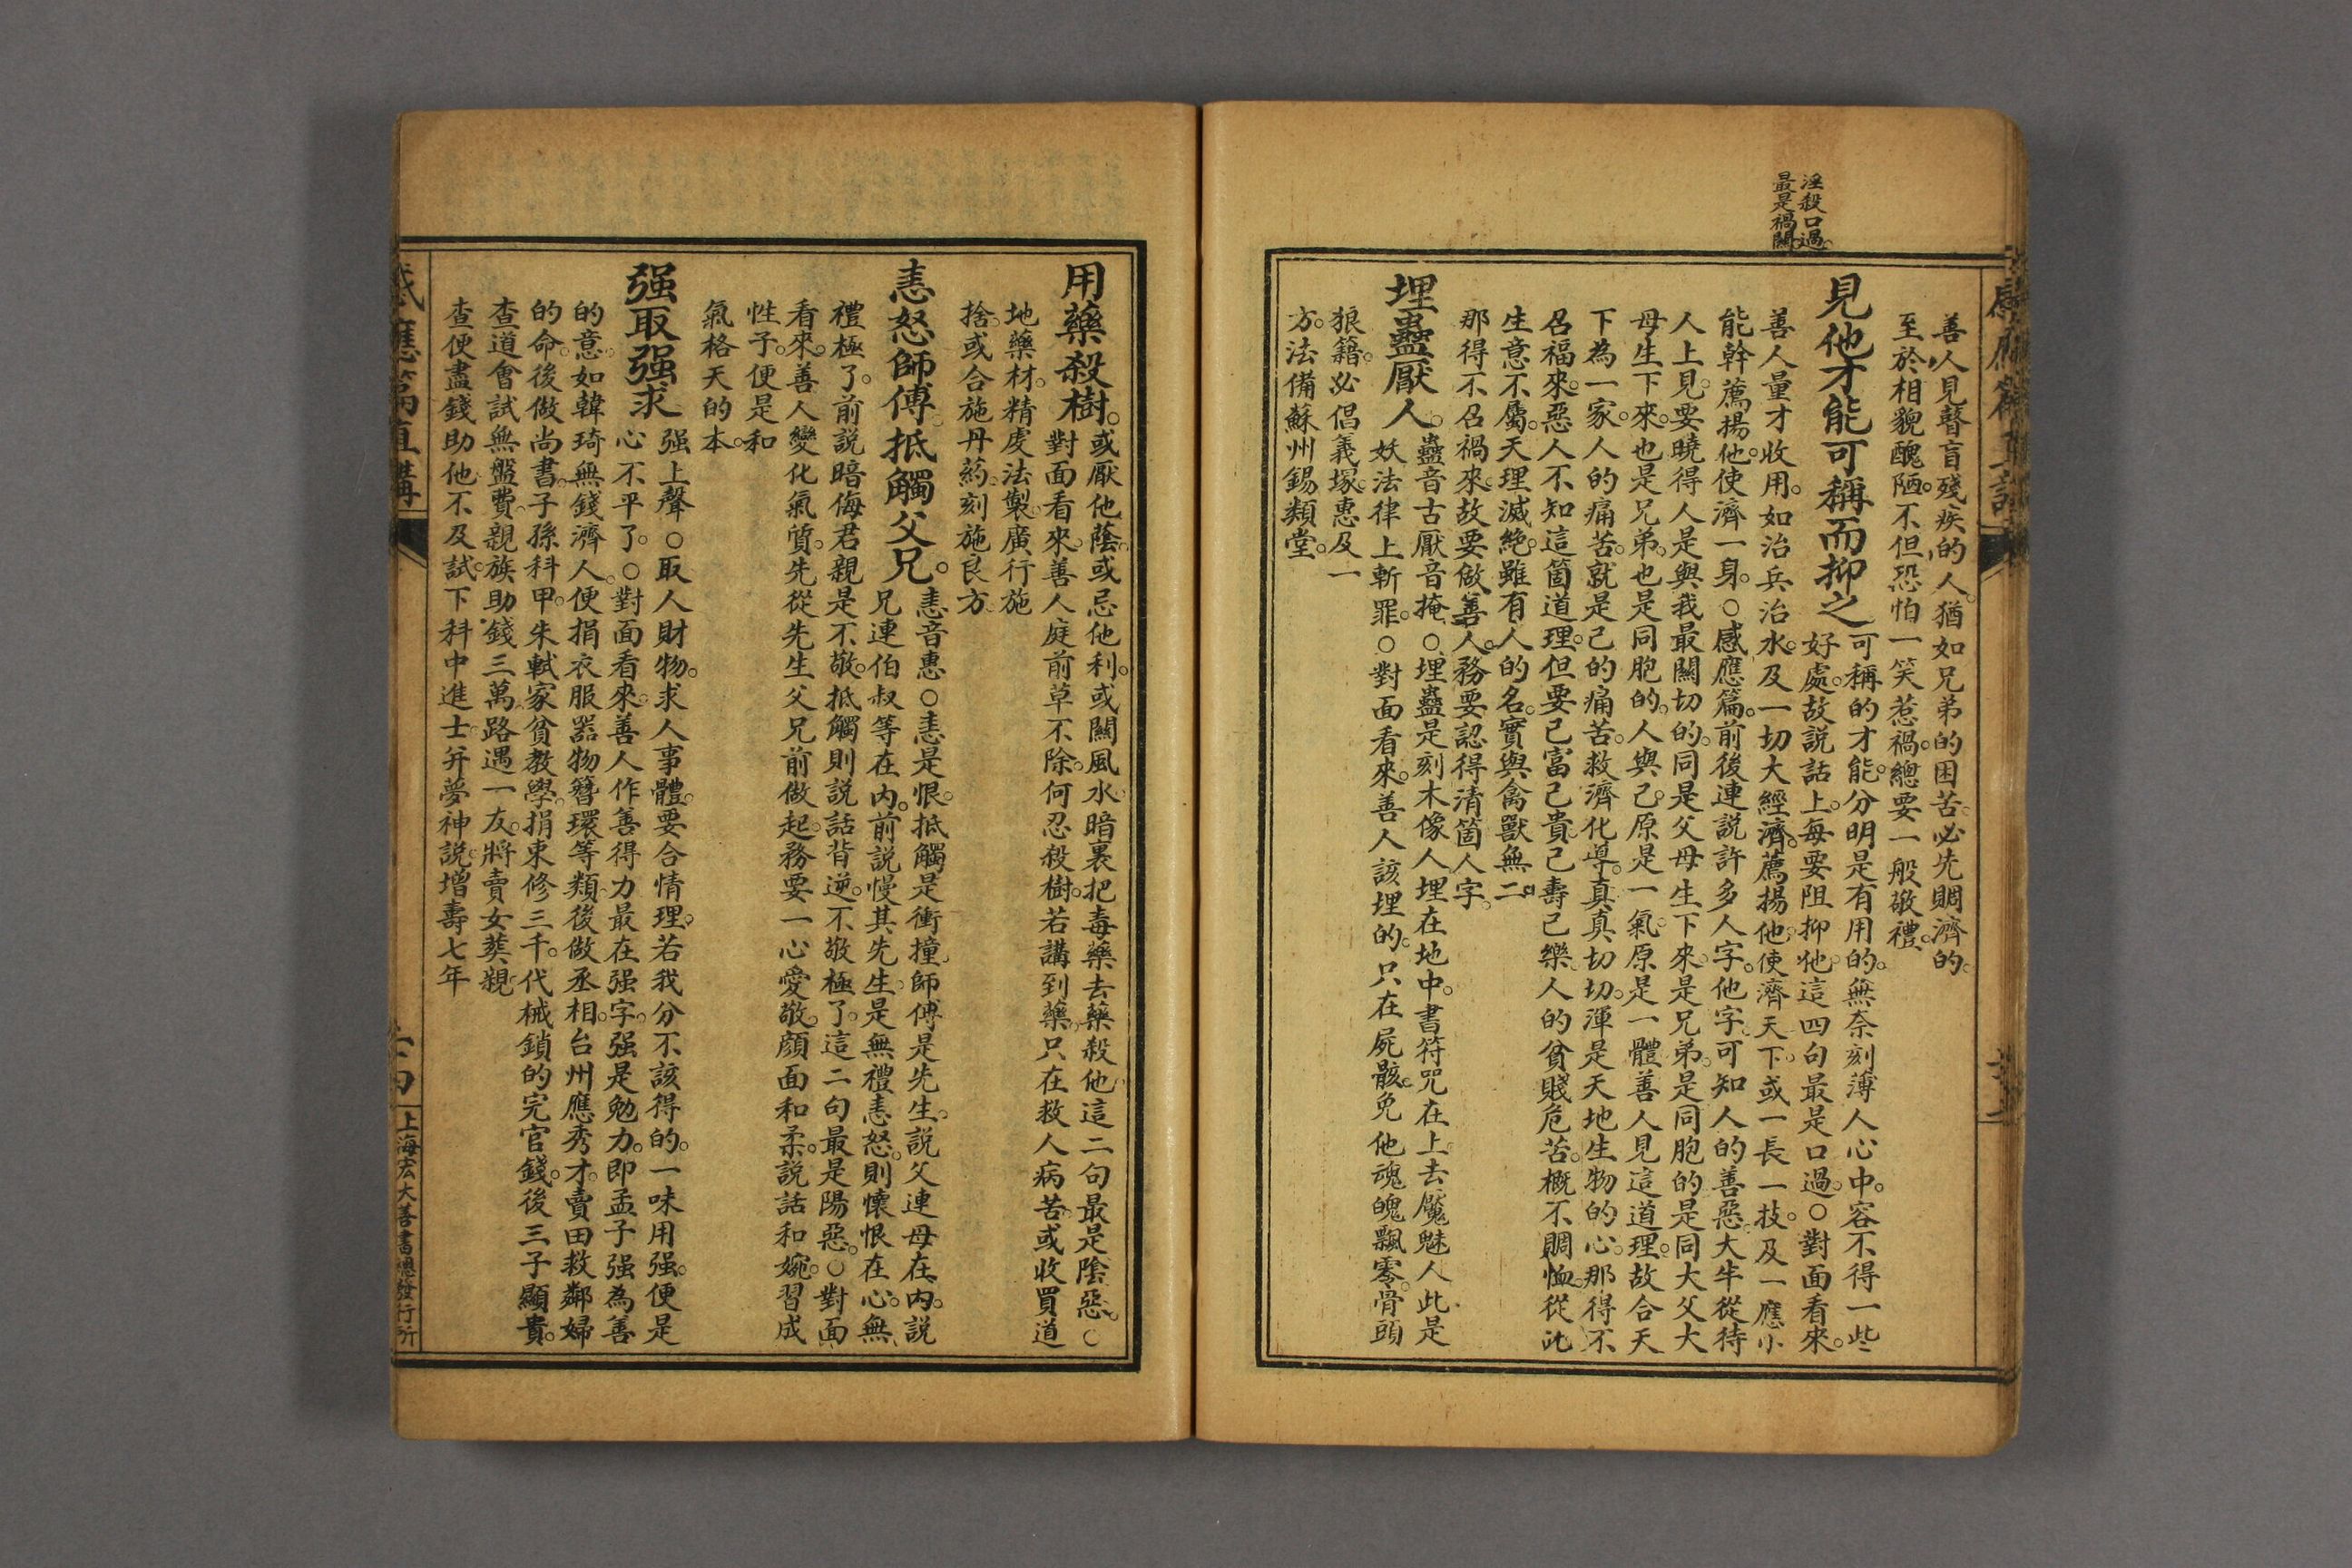 淫殺口過。
最是禍關。
善人見瞽盲殘疾的人。猶如兄弟的困苦。必先賙濟的。
至於相貌醜陋。不但恐怕一笑惹禍。總要一般敬禮。
見他才能可稱而抑之
可稱的才能。分明是有用的。無奈刻薄人心中。容不得一些
好處。故説話上。每要阻抑他。這四句最是口過。○對面看來。
善人量才收用。如治兵治水。及一切大經濟。薦揚他使濟天下。或一長一技。及一應小
能幹。薦揚他使濟一身。○感應篇。前後連説許多人字。他字。可知人的善惡。大半從待
人上見。要曉得人是與我最關切的。同是父母生下來。是兄弟。是同胞的。是同大父大
母生下來。也是兄弟。也是同胞的。人與己。原是一氣。原是一體。善人見這道理。故合天
下為一家。人的痛苦。就是己的痛苦。救濟化導。真真切切。渾是天地生物的心。那得不
召福來。惡人不知這箇道理。但要己富己貴。己壽己樂。人的貧賤危苦。概不賙恤。從此
生意不屬。天理滅絕。雖有人的名。實與禽獸無二。
那得不召禍來。故要做善人。務要認得清箇人字。
埋蠱厭人。
蠱音古厭音掩。○埋蠱是刻木像人。埋在地中。書符咒在上。去魘魅人。此是
妖法。律上斬罪。○對面看來。善人該埋的。只在屍骸。免他魂魄飄零。骨頭
狼籍。必倡義塚。惠及一
方。法備蘇州錫類堂。
用藥殺樹。
或厭他蔭。或忌他利。或關風水。暗裏把毒藥去藥殺他。這二句最是陰惡。○
對面看來。善人庭前草不除。何忍殺樹。若講到藥。只在救人病苦。或收買道
地藥材。精虔法製。廣行施
捨。或合施丹药。刻施良方。
恚怒師傅。抵觸父兄。
恚音惠。○恚是恨。抵觸是衝撞。師傅是先生。説父連母在內。説
兄連伯叔等在內。前説慢其先生。是無禮。恚怒。則懷恨在心。無
禮極了。前説暗侮君親。是不敬。抵觸則説話背逆。不敬極了。這二句最是陽惡。○對面
看來。善人變化氣質。先從先生父兄前做起。務要一心愛敬。顔面和柔。説話和婉。習成
性子。便是和
氣格天的本。
强取强求
强上聲。○取人財物。求人事體。要合情理。若我分不該得的。一味用强。便是
心不平了。○對面看來。善人作善得力。最在强字。强是勉力。即孟子强為善
的意。如韓琦無錢濟人。便捐衣服器物簪環等類。後做丞相。台州應秀才。賣田救鄰婦
的命。後做尚書。子孫科甲。朱軾家貧教學。捐束修三千。代械鎖的完官錢。後三子顯貴。
查道會試無盤費。親族助錢三萬。路遇一友。將賣女葬親。
查便盡錢助他。不及試。下科中進士。并夢神説。增壽七年
感應篇直講
上海宏大善書總發行所